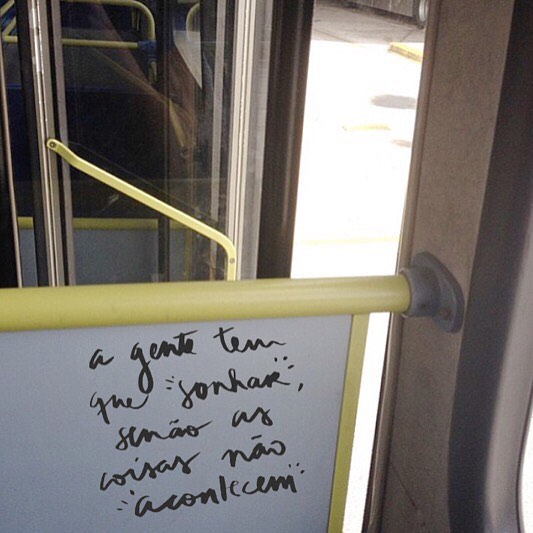 a gente tem
que "sonhar",
senão as
coisas não
"acontecem"